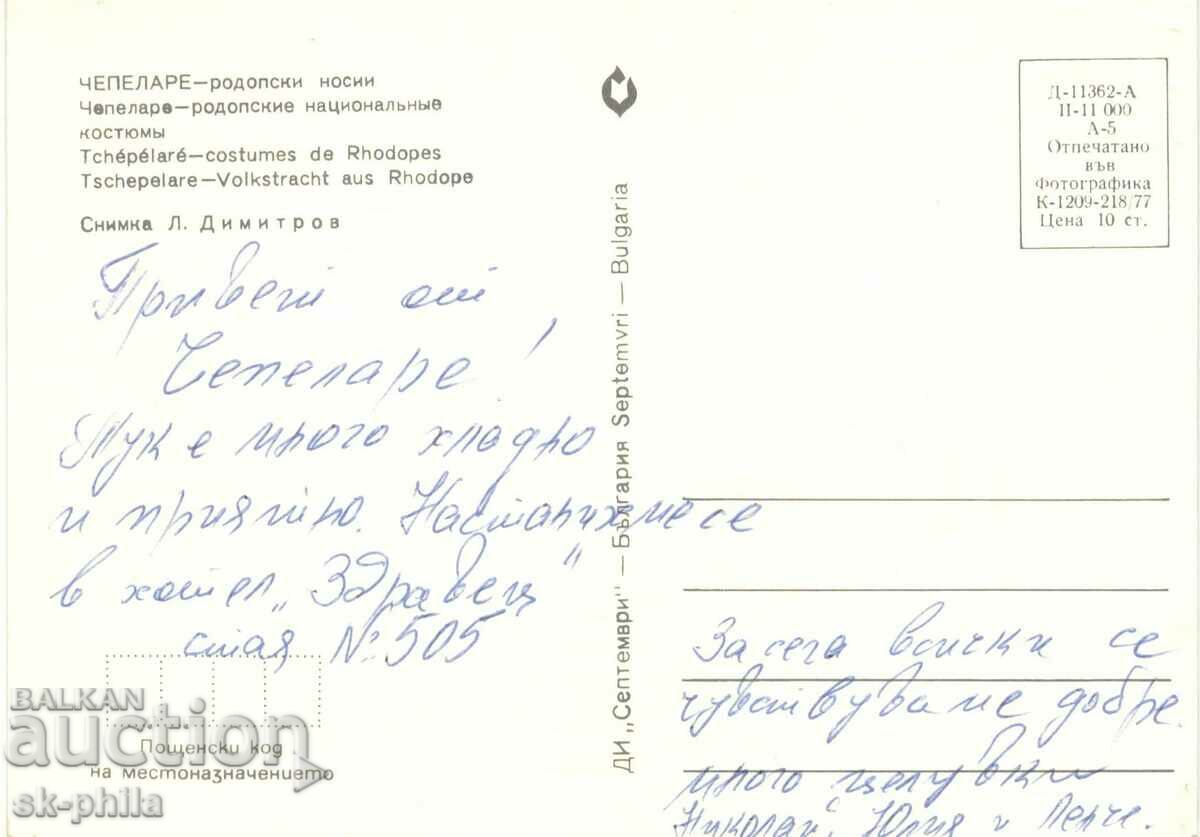 ЧЕПЕЛАРЕ—родопски носии
Чепеларе—родопские национальные
костюмы
Tchépélaré—costumes de Rhodopes
Tschepelare—Volkstracht aus Rhodope
Снимка Л. Димитров
Привет от
Чепеларе!
Тук е много хладно
и приятно. Настанихме се
в хотел „Здравец"
стая № 505
Пощенски код
на местоназначението
ДИ „Септември" — България Septemvri — Bulgaria
Д-11362-А
П-11 000
А-5
Отпечатано
във
Фотографика
К-1209-218/77
Цена 10 ст.
За сега всички се
чувствуваме добре.
много целувки
Николай, Юлия и Ленче.
BALKAN
auction
sk-phila